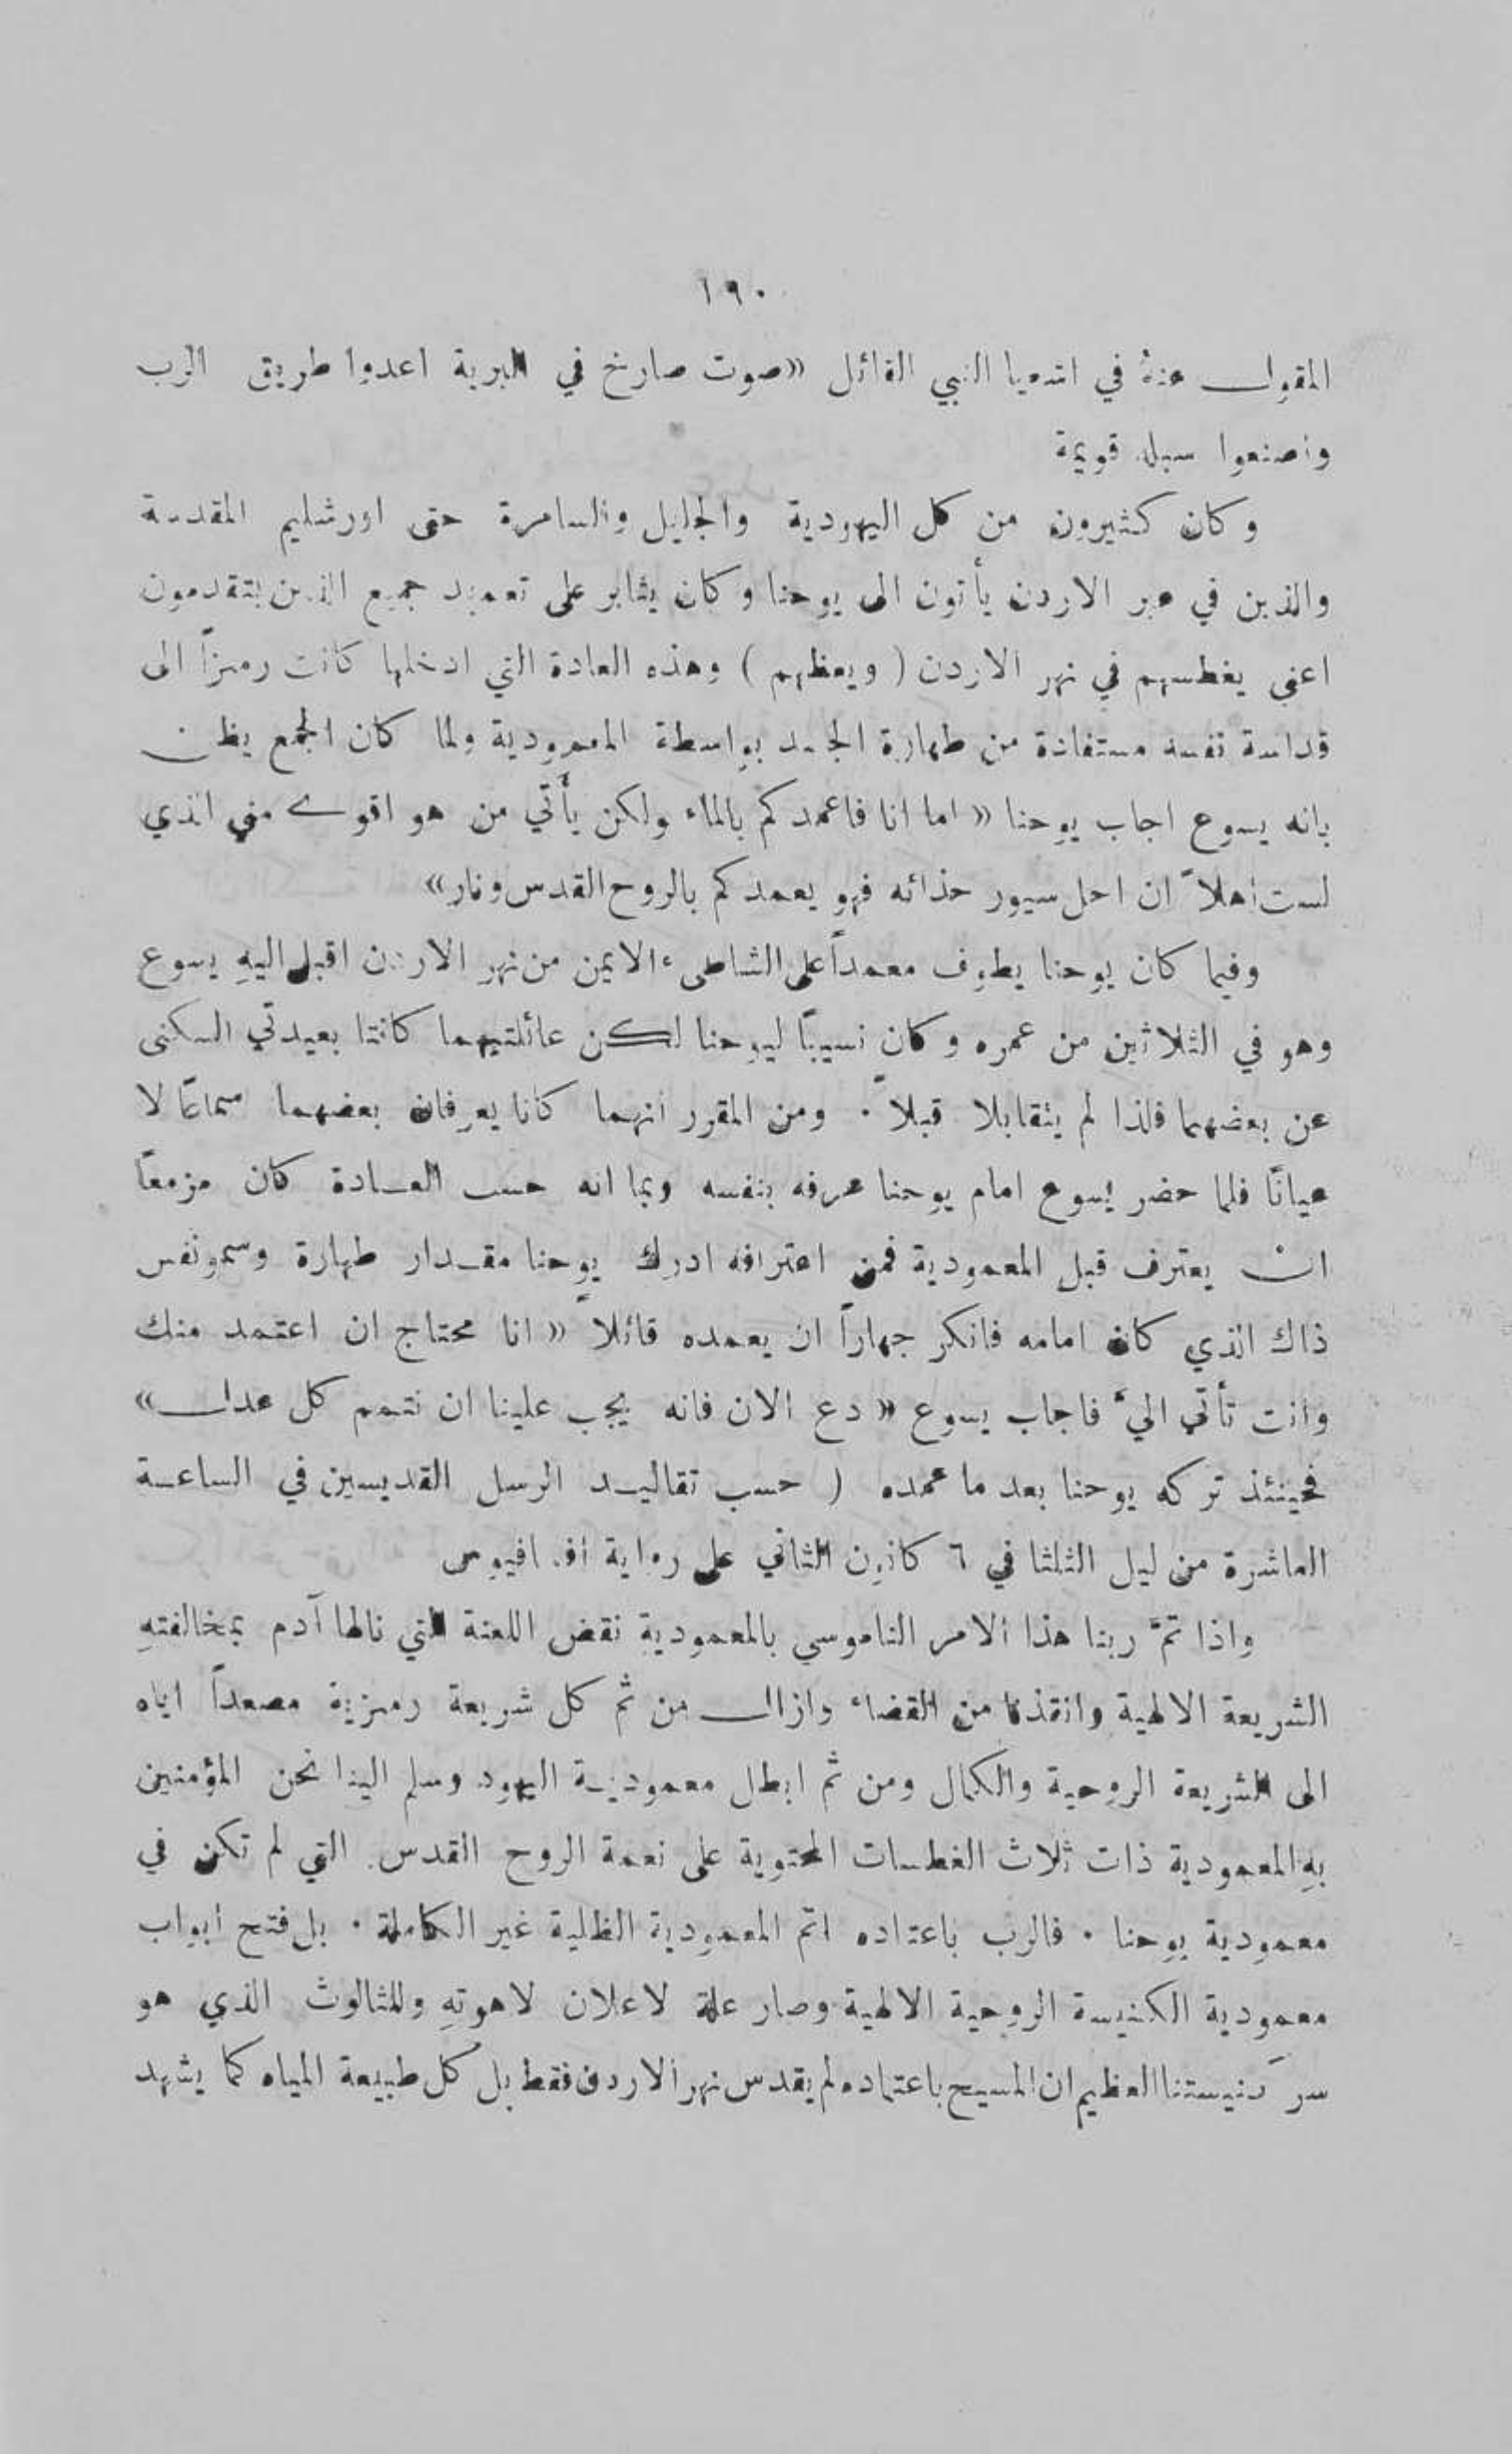 ١٩٠
المقول عنهُ في اشعيا النبي القائل «صوت صارخ في البرية اعدوا طريق الرب
واصنعوا سبله قويمة
وكان كثيرون من كل اليهودية والجليل والسامرة حتى اورشليم المقدسة
والذين في عبر الاردن يأتون الى يوحنا وكان يثابر على تعميد جميع الذين يتقدمون
اعني يغطسهم في نهر الاردن ( ويعظهم ) وهذه العادة التي ادخلها كانت رمزاً الى
قداسة نفسه مستفادة من طهارة الجسد بواسطة المعمودية ولما كان الجمع يظن
بانه يسوع اجاب يوحنا « اما انا فاعمدكم بالماء ولكن يأتي من هو اقوى مني الذي
لست اهلاً ان احل سيور حذائه فهو يعمدكم بالروح القدس ونار»
وفيما كان يوحنا يطوف معمداً على الشاطىء الايمن من نهر الاردن اقبل اليهِ يسوع
وهو في الثلاثين من عمره وكان نسيباً ليوحنا لكن عائلتيهما كانتا بعيدتي السكنى
عن بعضهما فلذا لم يتقابلا قبلاً . ومن المقرر انهما كانا يعرفان بعضهما سماعًا لا
عيانًا فلما حضر يسوع امام يوحنا عرفه بنفسه وبما انه حسب العادة كان مزمعًا
ان يعترف قبل المعمودية فمن اعترافه ادرك يوحنا مقدار طهارة وسمو نفس
ذاك الذي كان امامه فانكر جهاراً ان يعمده قائلاً « انا محتاج ان اعتمد منك
وانت تأتي اليَّ فاجاب يسوع « دع الان فانه يجب علينا ان نتمم كل عدل »
فحينئذ تركه يوحنا بعد ما عمده ( حسب تقاليد الرسل القديسين في الساعة
العاشرة من ليل الثلثا في ٦ كانون الثاني على رواية
واذا تمَّ ربنا هذا الامر الناموسي بالمعمودية نقض اللعنة التي نالها آدم بمخالفتهِ
الشريعة الالهية وانقذنا من القضاء وازال من ثم كل شريعة رمزية مصعداً اياه
الى الشريعة الروحية والكمال ومن ثم ابطل معمودية اليهود وسلم الينا نحن المؤمنين
بهِ المعمودية ذات ثلاث الغطسات المحتوية على نعمة الروح القدس. التي لم تكن في
معمودية يوحنا . فالرب باعتماده اتم المعمودية الظلية غير الكاملة . بل فتح ابواب
معمودية الكنيسة الروحية الالهية وصار علة لاعلان لاهوتهِ وللثالوث الذي هو
سر كنيستنا العظيم ان المسيح باعتماده لم يقدس نهر الاردن فقط بل كل طبيعة المياه كما يشهد